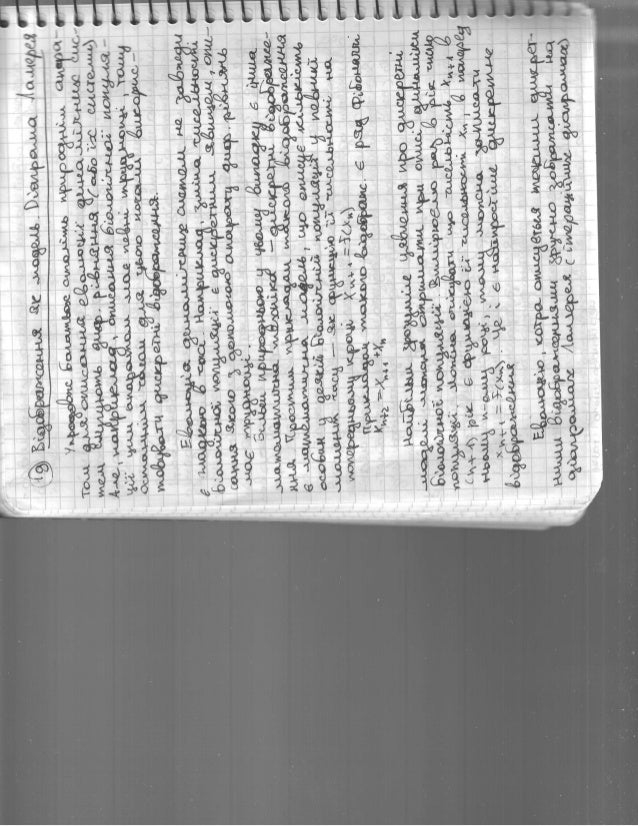 19 Відображення як модель. Діаграма Ламерея
Упродовж багатьох століть природнім апара-
том для описання еволюції динамічних сис-
тем служать диф. рівняння (або їх системи)
Але, наприклад, описання біологічної популя-
ції цим апаратом має певні труднощі тому
останнім часом для цього почали викорис-
товувати дискретні відображення.
Еволюція динамічних систем не завжди
є гладкою в часі. Наприклад, зміна чисельності
біологічної популяції є дискретним явищем, опи-
сання якого з допомогою апарату диф. рівнянь
має труднощі.
Більш природньою у цьому випадку є інша
математична техніка – дискретні відображе-
ння. Простим прикладом такого відображення
є математична модель, що описує кількість
особин у деякій біологічній популяції у певний
момент часу – як функцію її чисельності на
попередньому кроці xₙ₊₁ = f(xₙ)
Прикладом такого відображ. є ряд Фібоначчі
xₙ₊₂ = xₙ₊₁ + xₙ
Найбільш зрозуміле уявлення про дискретні
моделі можна отримати при описі динаміки
біологічної популяції. Замірюємо раз в рік число
популяції можна очікувати що чисельність xₙ₊₁ в
(n+1) рік є функцією її чисельності xₙ в поперед
ньому n-ому році, тому можна записати
xₙ₊₁ = f(xₙ). Це і є найпростіше дискретне
відображення
Еволюцію, котра описується точними дискрет-
ними відображеннями зручно зображати на
діаграмах Ламерея (ітераційних діаграмах)